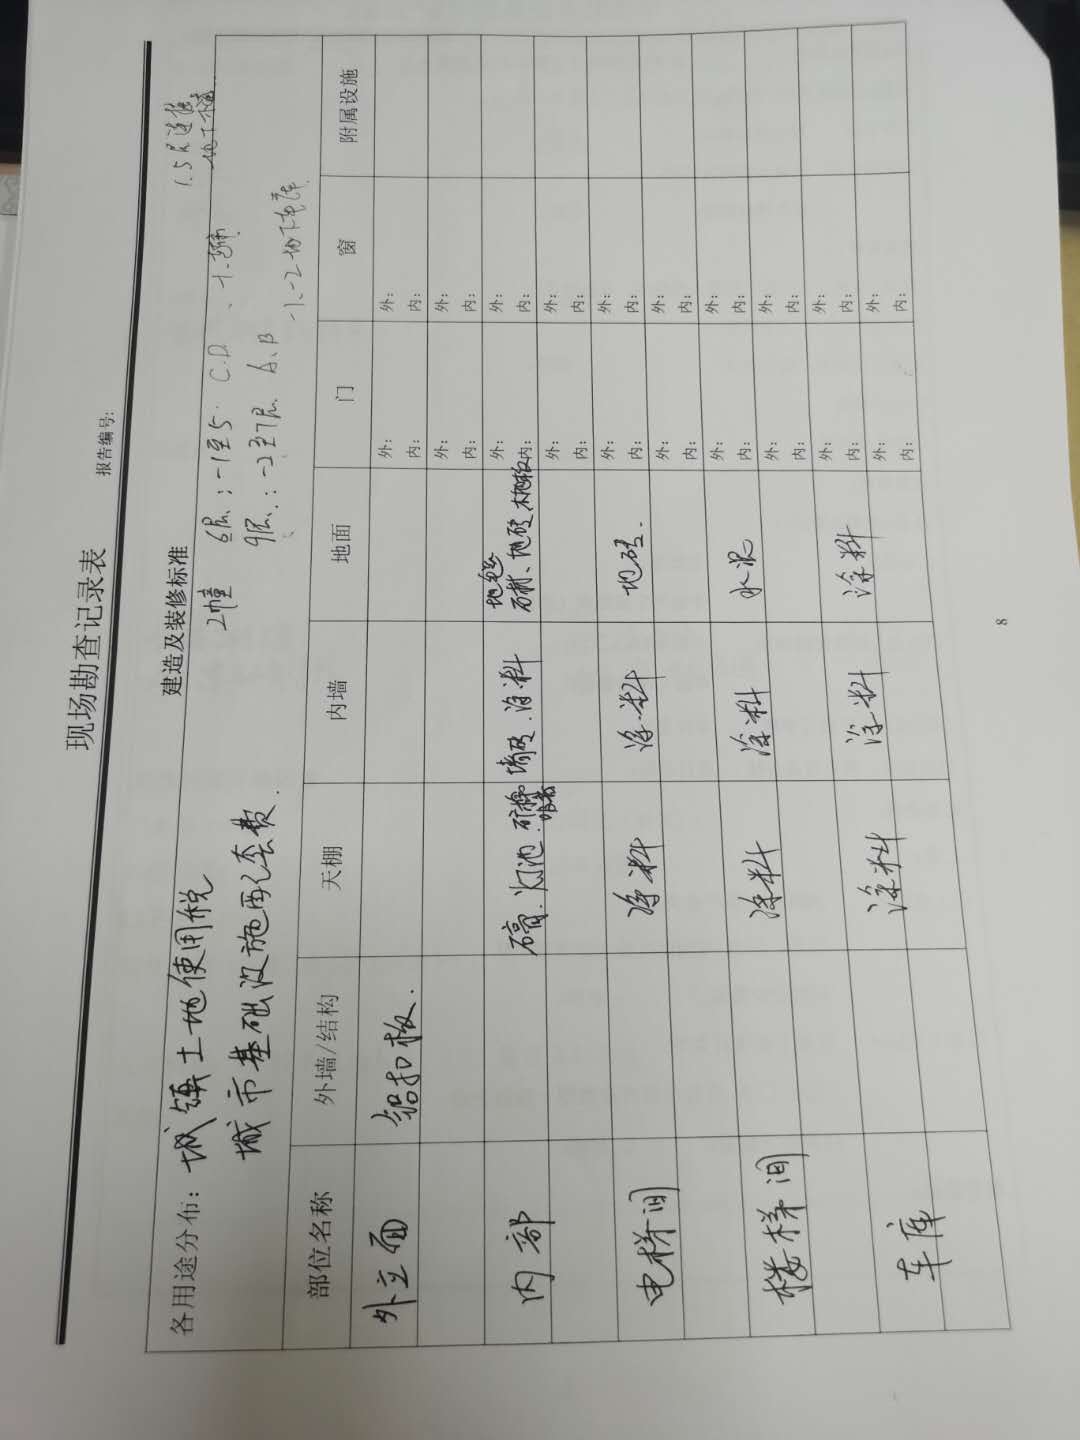 现场勘查记录表
报告编号:
建造及装修标准
各用途分布: 城镇土地使用税
城市基础设施配套费.
2幢 6层:-1至5. C.D
9层:-2至7层. A、B
-1、-2地下车库.
1.5层连接
部位名称 外墙/结构 天棚 内墙 地面 门 窗 附属设施
外立面 铝扣板. 外: 内: 外: 内:
外: 内: 外: 内:
内部 石膏.灯池.矿棉 墙砖.涂料 地毯 石材、地砖、木地板 外: 内: 外: 内:
外: 内: 外: 内:
电梯间 涂料 涂料 地砖. 外: 内: 外: 内:
外: 内: 外: 内:
楼梯间 涂料 涂料 水泥 外: 内: 外: 内:
外: 内: 外: 内:
车库 涂料 涂料 涂料 外: 内: 外: 内:
外: 内: 外: 内:
8